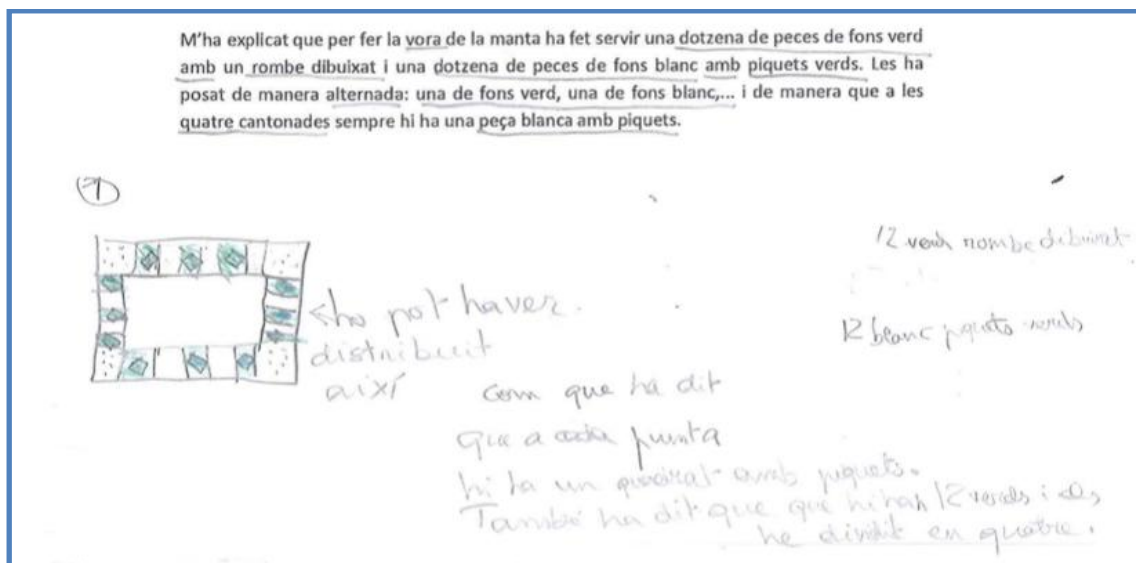 M'ha explicat que per fer la vora de la manta ha fet servir una dotzena de peces de fons verd
amb un rombe dibuixat i una dotzena de peces de fons blanc amb piquets verds. Les ha
posat de manera alternada: una de fons verd, una de fons blanc,... i de manera que a les
quatre cantonades sempre hi ha una peça blanca amb piquets.
1
12 verds rombe dibuixat
12 blanc piquets verds
s'ho pot haver
distribuit
així
com que ha dit
que a cada punta
hi ha un quadrat amb piquets.
També ha dit que que hi han 12 verds i els
he dividit en quatre.